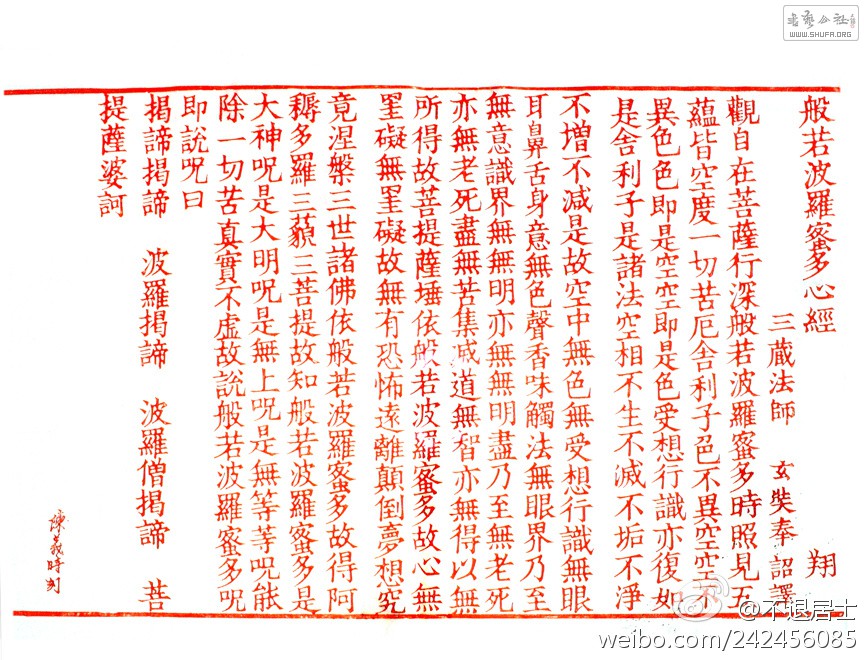 般若波羅蜜多心經 翔
三藏法師 玄奘奉詔譯
觀自在菩薩行深般若波羅蜜多時照見五
蘊皆空度一切苦厄舍利子色不異空空不
異色色即是空空即是色受想行識亦復如
是舍利子是諸法空相不生不滅不垢不淨
不增不減是故空中無色無受想行識無眼
耳鼻舌身意無色聲香味觸法無眼界乃至
無意識界無無明亦無無明盡乃至無老死
亦無老死盡無苦集滅道無智亦無得以無
所得故菩提薩埵依般若波羅蜜多故心無
罣礙無罣礙故無有恐怖遠離顛倒夢想究
竟涅槃三世諸佛依般若波羅蜜多故得阿
耨多羅三藐三菩提故知般若波羅蜜多是
大神呪是大明呪是無上呪是無等等呪能
除一切苦真實不虛故說般若波羅蜜多呪
即說呪曰
揭諦揭諦 波羅揭諦 波羅僧揭諦 菩
提薩婆訶
陳義時刻
WWW.SHUFA.ORG
@不退居士
weibo.com/242456085